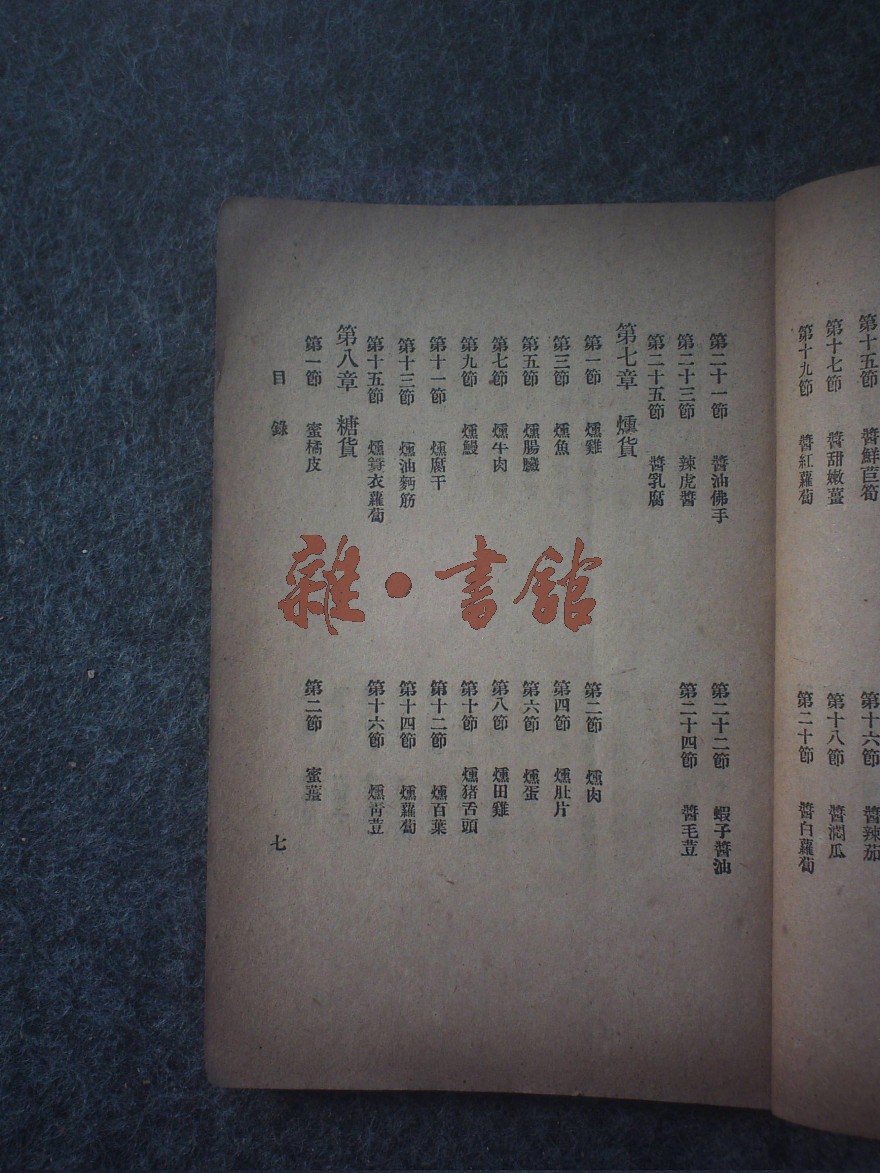 第十五節　醬鮮萵筍
第十六節　醬辣茄
第十七節　醬甜嫩薑
第十八節　醬潤瓜
第十九節　醬紅蘿蔔
第二十節　醬白蘿蔔
第二十一節　醬油佛手
第二十二節　蝦子醬油
第二十三節　辣虎醬
第二十四節　醬毛荳
第二十五節　醬乳腐
第七章　燻貨
第一節　燻雞
第二節　燻肉
第三節　燻魚
第四節　燻肚片
第五節　燻腸臟
第六節　燻蛋
第七節　燻牛肉
第八節　燻田雞
第九節　燻鰻
第十節　燻猪舌頭
第十一節　燻腐干
第十二節　燻百葉
第十三節　燻油麪筋
第十四節　燻蘿蔔
第十五節　燻蓑衣蘿蔔
第十六節　燻青荳
第八章　糖貨
第一節　蜜橘皮
第二節　蜜薑
目錄
七
雜·書館